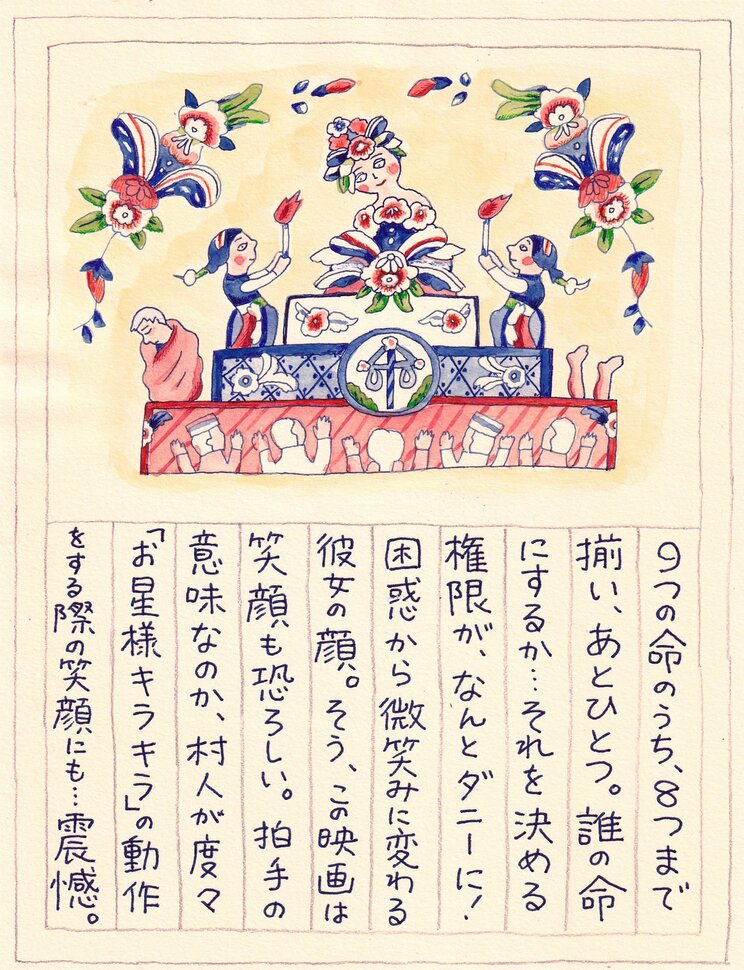 9つの命のうち、8つまで
揃い、あとひとつ。誰の命
にするか…それを決める
権限が、なんとダニーに!
困惑から微笑みに変わる
彼女の顔。そう、この映画は
笑顔も恐ろしい。拍手の
意味なのか、村人が度々
「お星様キラキラ」の動作
をする際の笑顔にも…震憾。